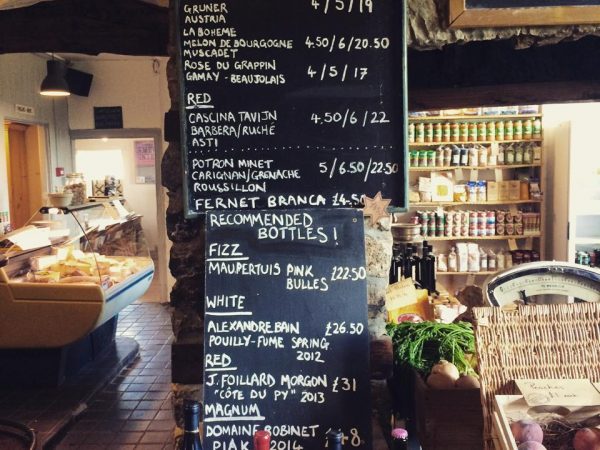 GRUNER 4/5/19
AUSTRIA
LA BOHEME
MELON DE BOURGOGNE 4.50/6/20.50
MUSCADET
ROSE DU GRAPPIN
GAMAY - BEAUJOLAIS 4/5/17
RED
CASCINA TAVIJN 4.50/6/22
BARBERA/RUCHÉ
ASTI
POTRON MINET 5/6.50/22.50
CARIGNAN/GRENACHE
ROUSSILLON
FERNET BRANCA £4.50
RECOMMENDED
BOTTLES!
FIZZ
MAUPERTUIS PINK £22.50
BULLES
WHITE
ALEXANDRE BAIN £26.50
POUILLY-FUME SPRING
2012
RED
J. FOILLARD MORGON £31
"CÔTE DU PY" 2013
MAGNUM
DOMAINE BOBINET
PIAK 2014
Peaches